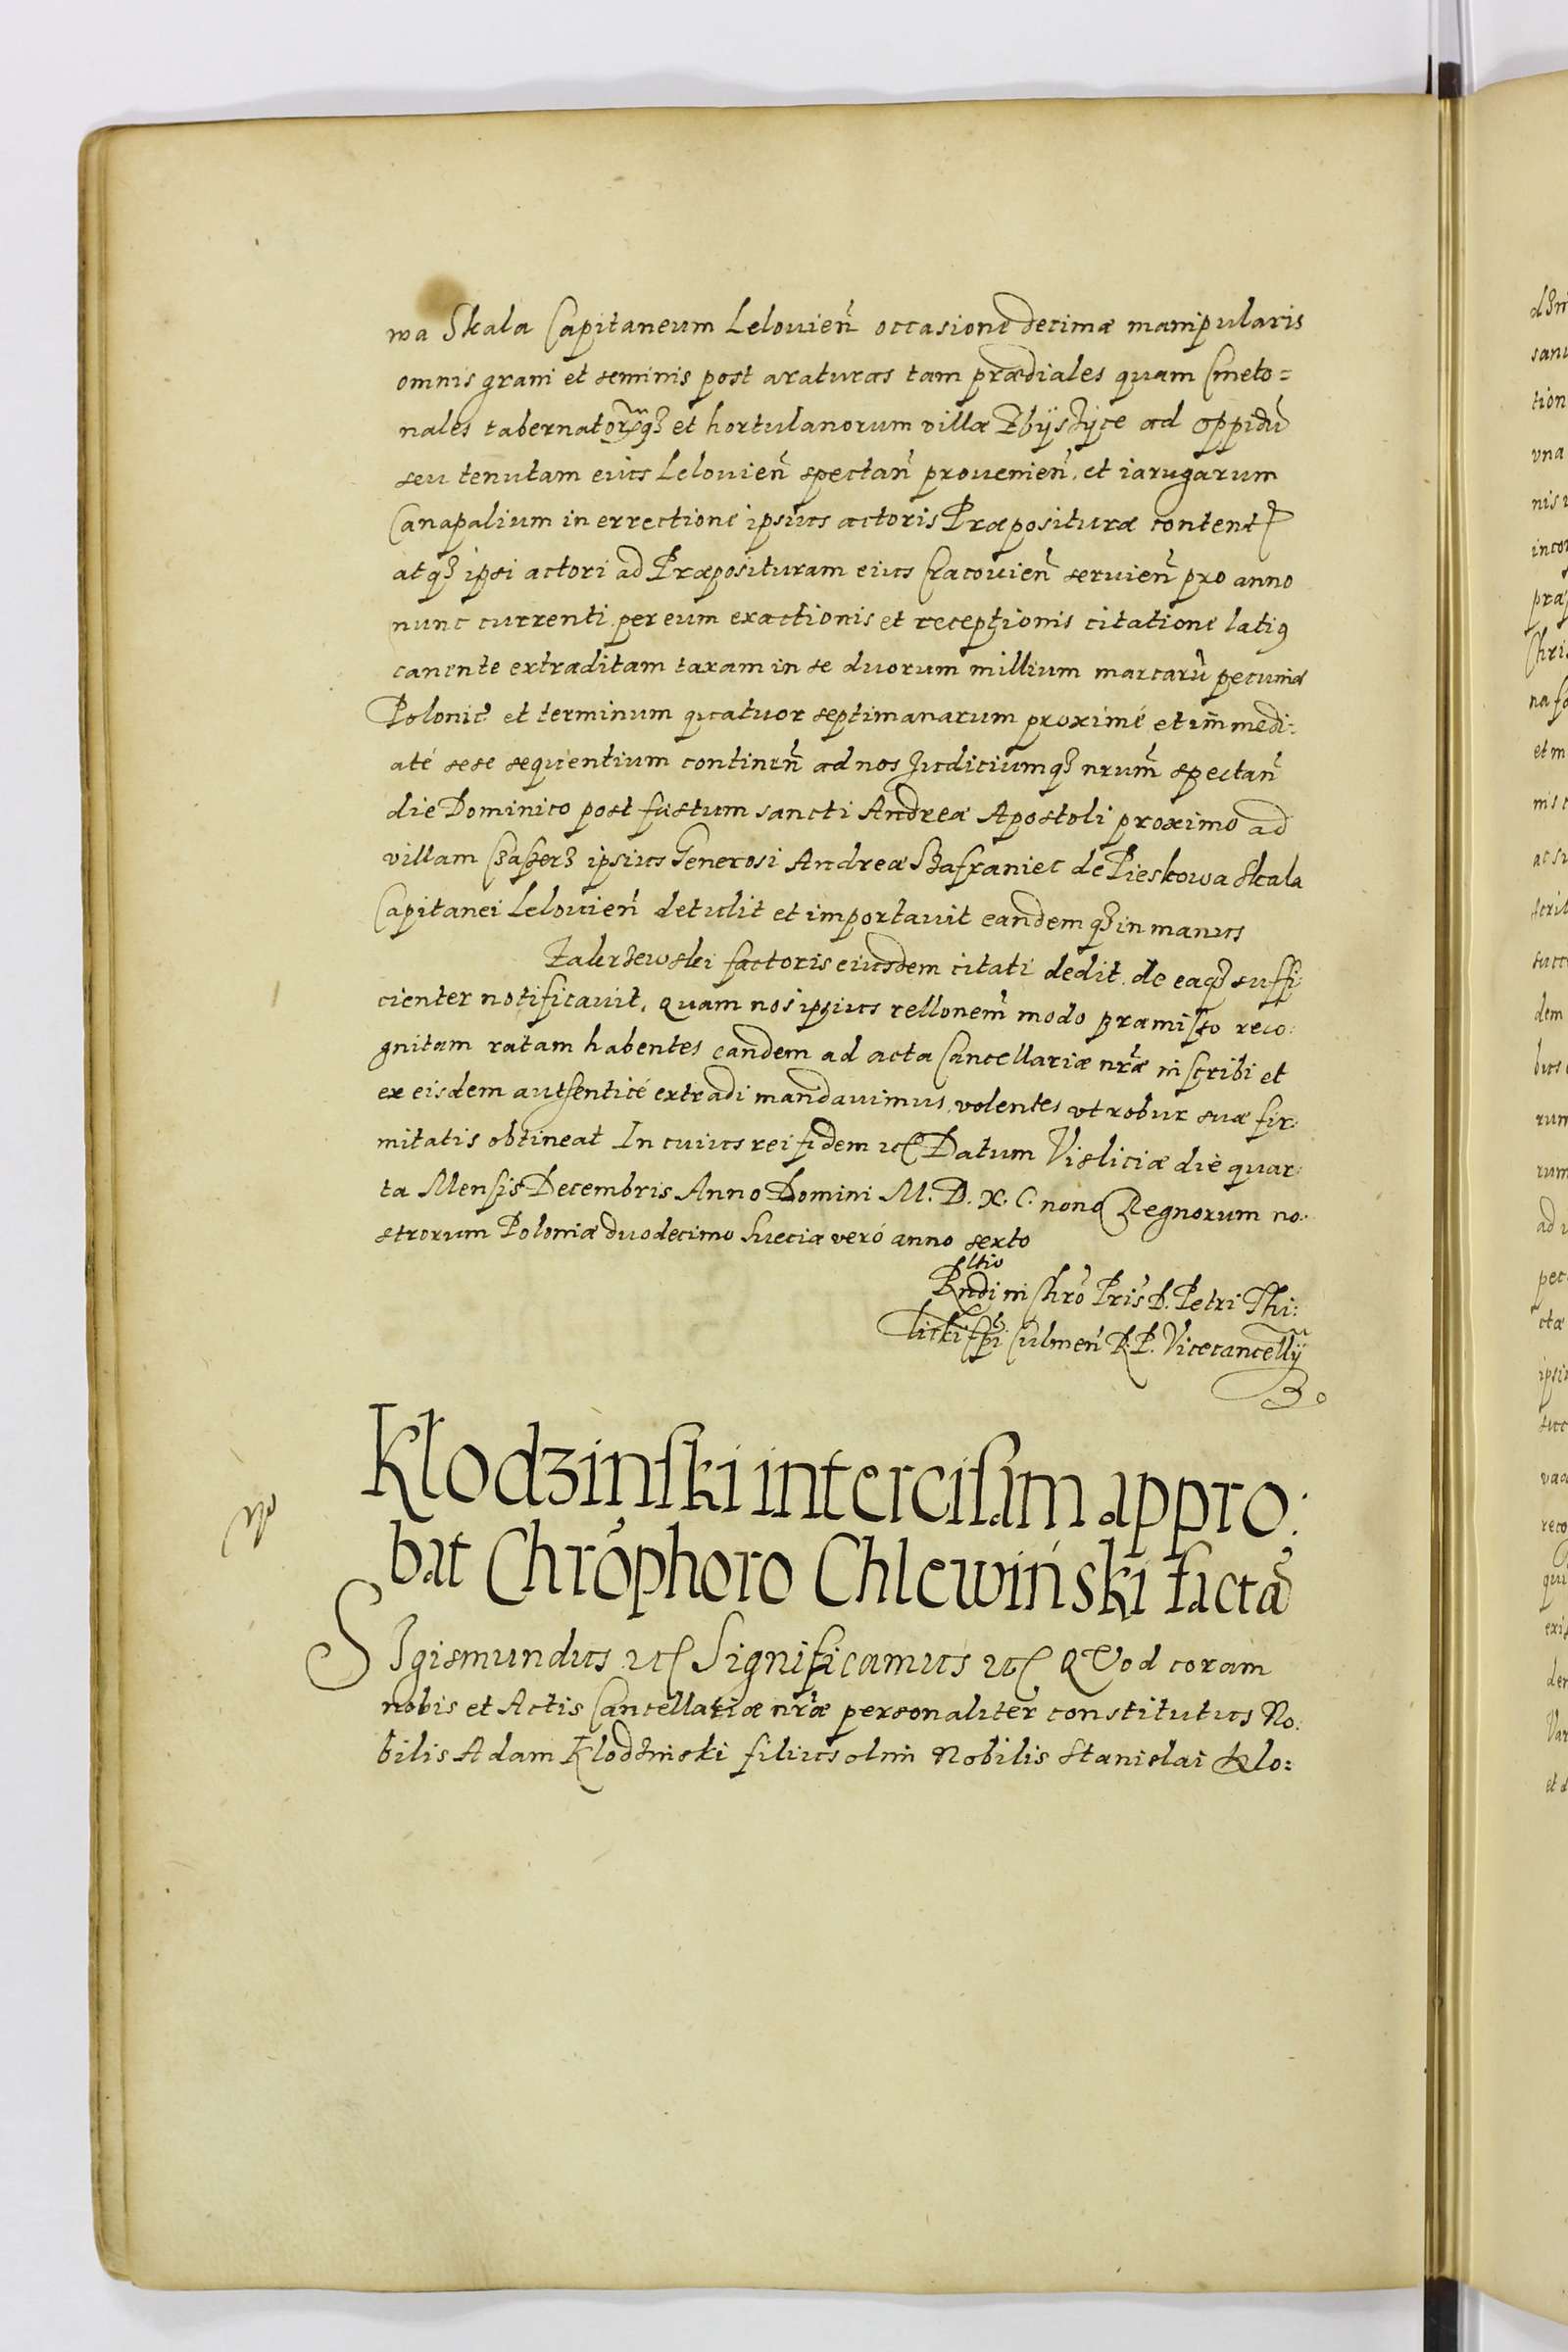 wa Skala Capitaneum Lelouien̄ occasione decimæ manipularis
omnis grani et seminis post araturas tam prædiales quam Cmeto=
nales tabernatorumq₃ et hortulanorum villæ Zbijstzÿce ad oppidū
seu tenutam eius Lelouien̄ spectan̄ prouenien̄. et iarugarum
Canapalium in errectione ipsius actoris Præpositura content
atq₃ ipsi actori ad Præposituram eius Cracouien̄ seruien̄ pro anno
nunc currenti per eum exactionis et receptionis citatione latiꝰ
canente extraditam taxam in se duorum millium marcarū pecuniæ
Polonic̄ et terminum quatuor septimanarum proximé et im̄medi:
até sese sequentium continen̄ ad nos Judiciumq₃ nrum̄ spectan̄
die Dominico post festum sancti Andreæ Apostoli proximo ad
villam ipsius Generosi Andreæ Szafraniec de Pieskowa Skala
Capitanei Lelouien̄ detulit et importauit eandemq₃ in manus
Zakrzewski factoris eiusdem citati dedit. de eaq₃ suffi
cienter notificauit, quam nos ipsius rellonem̄ modo præmisso reco:
gnitam ratam habentes eandem ad acta Cancellariæ nr̄æ inscribi et
ex eisdem authenticé extradi mandauimus, volentes vt robur suæ fir:
mitatis obtineat In cuius rei fidem etc Datum Visliciæ die quar:
ta Mensis Decembris Anno Domini M. D. X. C. nono Regnorum no.
strorum Poloniæ duodecimo Sueciæ veró anno sexto
ltio
Rndi in Chrō Pris̄ D. Petri Thi:
licki Ep̄i Culmen̄ R. P. Vicecancellÿ
Klodzinski intercisam appro:
bat Chrōphoro Chlewiński factā
SIgismundus etc Significamus etc QVod coram
nobis et Actis Cancellariæ nr̄æ personaliter constitutus No.
bilis Adam Klodzinski filius olim Nobilis Stanislai Klo=